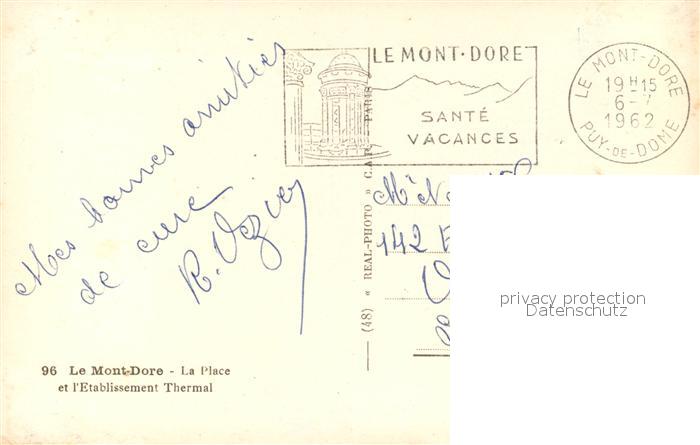 Mes bonnes amitiés
de cure
R.
96 Le Mont-Dore - La Place
et l'Etablissement Thermal
(48) « REAL-PHOTO » C.A.P. - PARIS
LE MONT-DORE
SANTÉ
VACANCES
LE MONT-DORE
19H15
6-7
1962
PUY-DE-DOME
Mr
142
privacy protection
Datenschutz